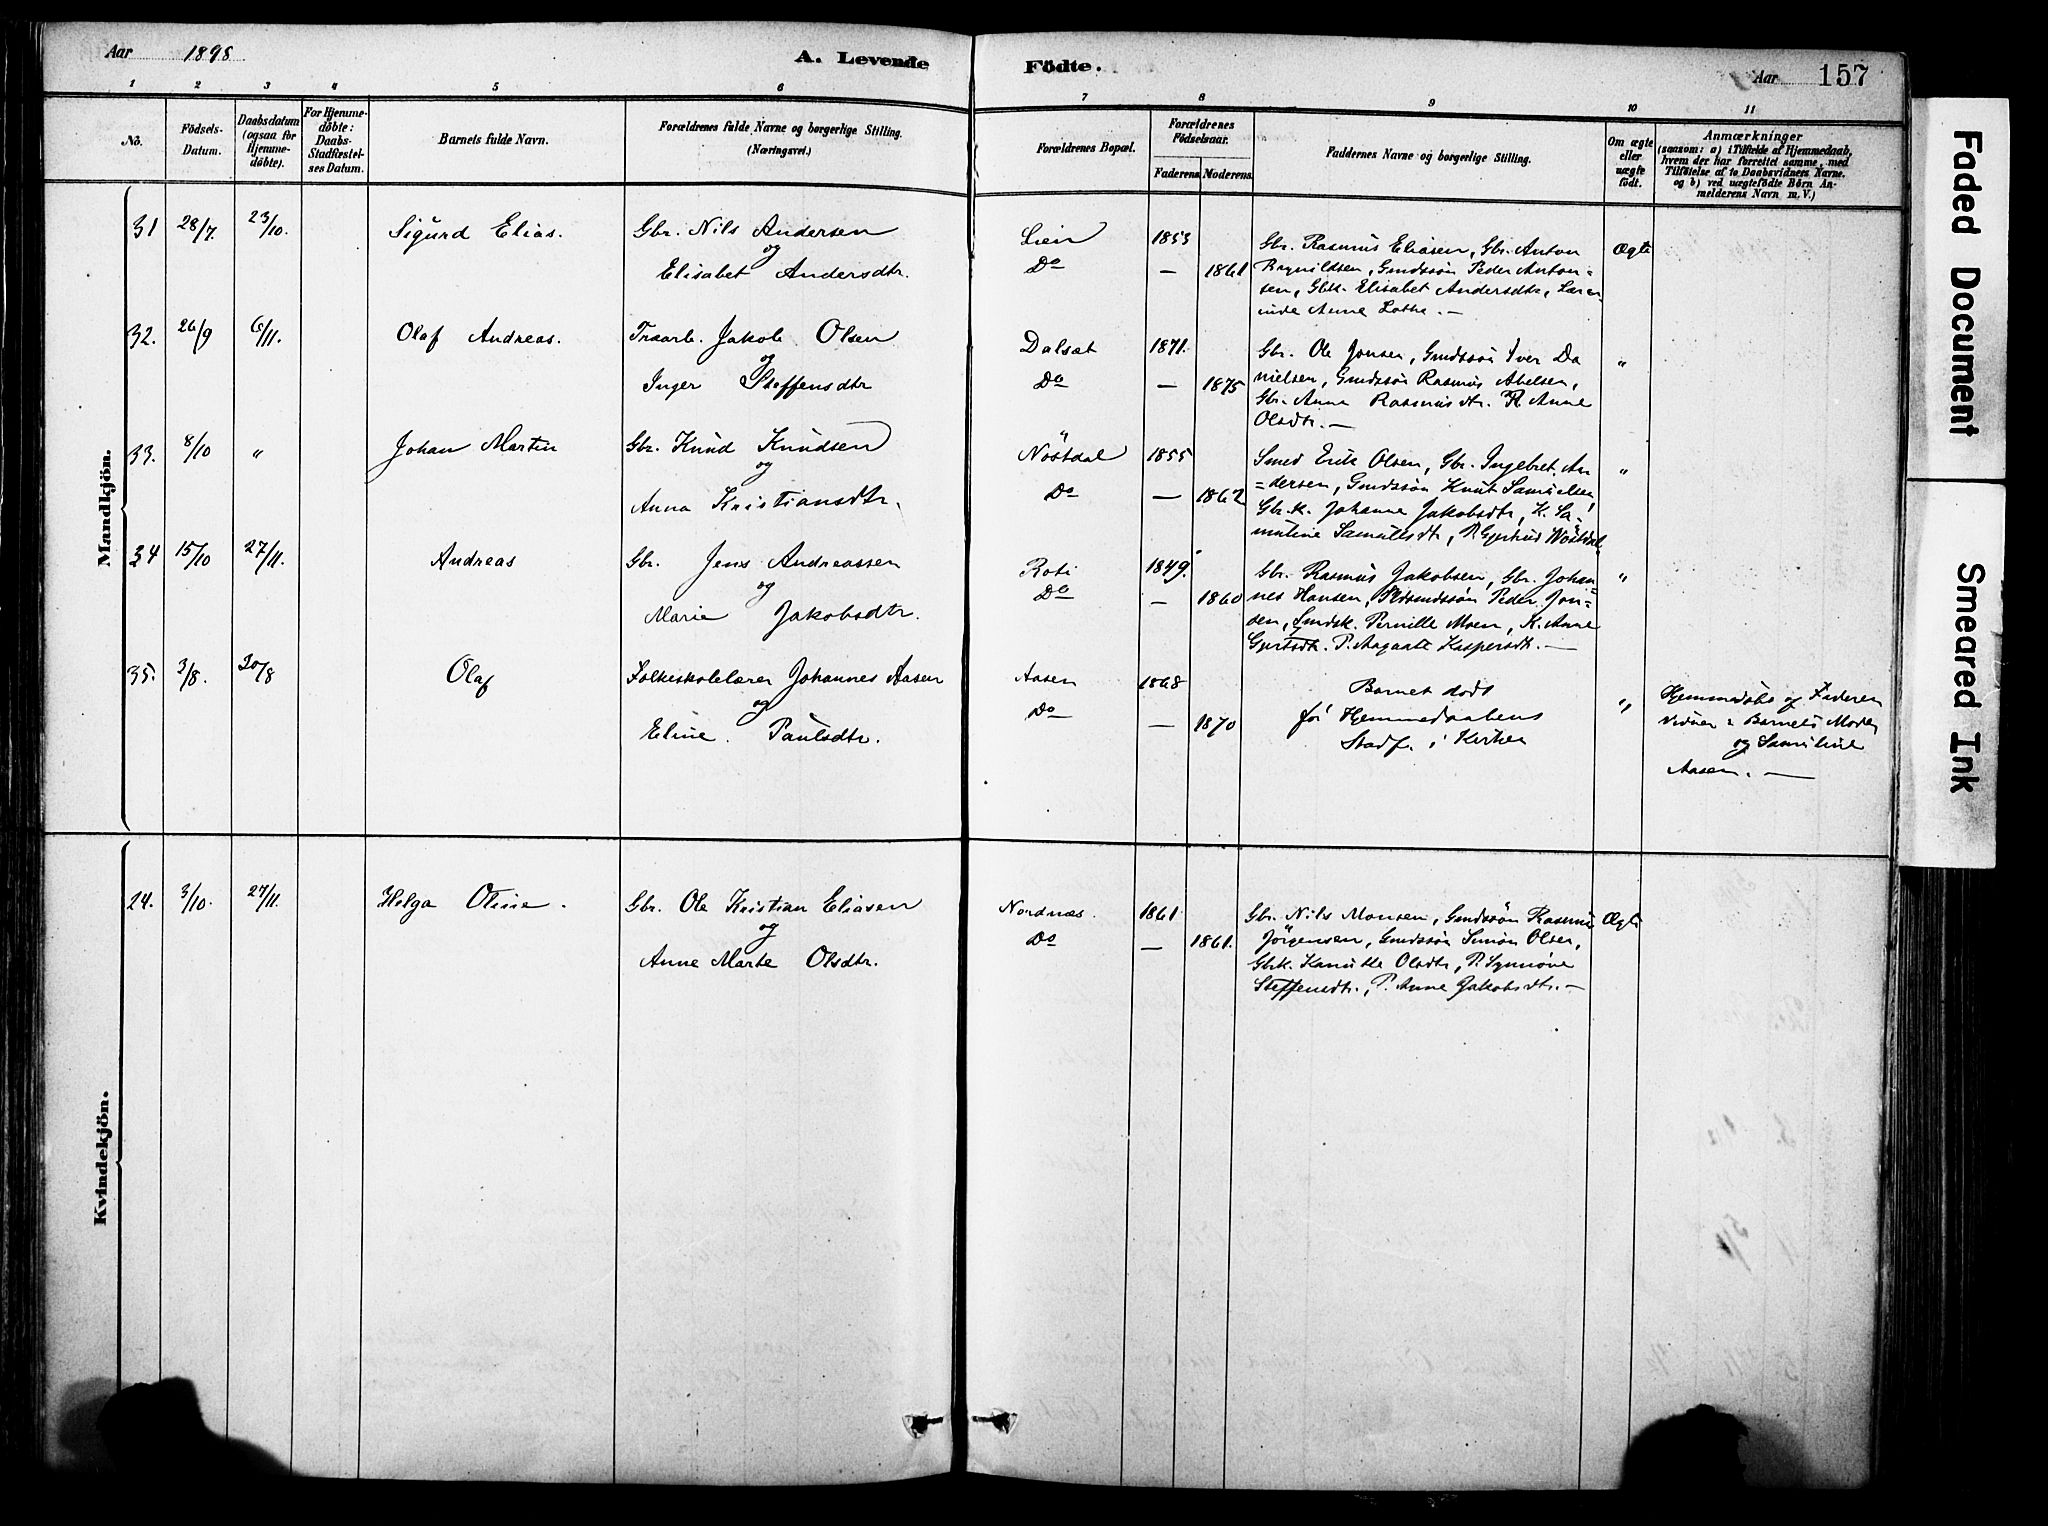 Aar 1898
A. Levende Födte.
Aar 157
1 2 3 4 5 6 7 8 9 10 11
No.
Födsels-Datum.
Daabsdatum (ogsaa for Hjemme-döbte).
For Hjemme-döbte: Daabs-Stadfæstel-ses Datum.
Barnets fulde Navn.
Forældrenes fulde Navne og borgerlige Stilling.
(Næringsvei.)
Forældrenes Bopæl.
Forældrenes Födselsaar.
Faderens Moderens
Faddernes Navne og borgerlige Stilling.
Om ægte eller uægte födt.
Anmærkninger
(saasom: a) i Tilfælde af Hjemmedaab,
hvem der har forrettet samme, med
Tilföielse af to Daabsvidners Navne.
og b) ved uægtefödte Börn An-
melderens Navn m. V.)
Mandkjön.
31 28/7 23/10 Sigurd Elias. Gbr. Nils Andersen Lien 1853
og
Elisabet Andersdtr. Do — 1861
Gbr. Rasmus Eliasen, Gbr. Anton
Bagnildsen, Gmdssön Peder Anton=
sen, Gbk. Elisabet Andersdtr, Lærer-
inde Anne Lothe. —
Ægte
32. 26/9 6/11. Olaf Andreas. Traarb. Jakob Olsen Dalsæt 1871.
og
Inger Steffensdtr Do — 1875
Gbr. Ole Jonsen, Gmdssön Iver Da
nielsen, Gmdssön Rasmus Abelsen,
Gbr. Anna Rasmusdtr. K. Anne
Olsdtr. —
"
33. 8/10 " Johan Martin Gbr. Knud Knudsen Nöstdal 1855
og
Anna Kristiansdtr. Do — 1862
Smed Erik Olsen, Gbr. Ingebret An
=dersen, Gmdssön Knut Samuelsen
Gbr.k. Johanne Jakobsdtr, K. Sa=
muline Samuelsdtr, P. Gjertrud Nöstdal.
"
34 15/10 27/11. Andreas Gbr. Jens Andreassen Roti 1849.
og
Marie Jakobsdtr. Do — 1860
Gbr. Rasmus Jakobsen, Gbr. Johan=
nes Hansen, Pldsmdssön Peder Jon=
sen, Gmdsk. Pernille Moen, K. Anne
Gjertsdtr. P. Aagaate Kaspersdtr. —
"
35. 3/8. 30/8 Olaf Folkeskolelærer Johannes Aasen Aasen 1868
og
Eline Paulsdtr. Do — 1870
Barnet dödt
för Hjemmedaabens
Stadf. i Kirken
"
Hjemmedöbt af Faderen
Vidner: Barnets Moder
og Samuline
Aasen. —
Kvindekjön.
24. 3/10. 27/11. Helga Oline. Gbr. Ole Kristian Eliasen Nordnæs. 1861
og
Anne Marte Olsdtr. Do — 1861.
Gbr. Nils Monsen, Gmdssön Rasmus
Jörgensen, Gmdssön Simon Olsen,
Gbrk. Kanutte Olsdtr, P. Synnöve
Steffensdtr., P. Anne Jakobsdtr. —
Ægte
Faded Document
Smeared Ink